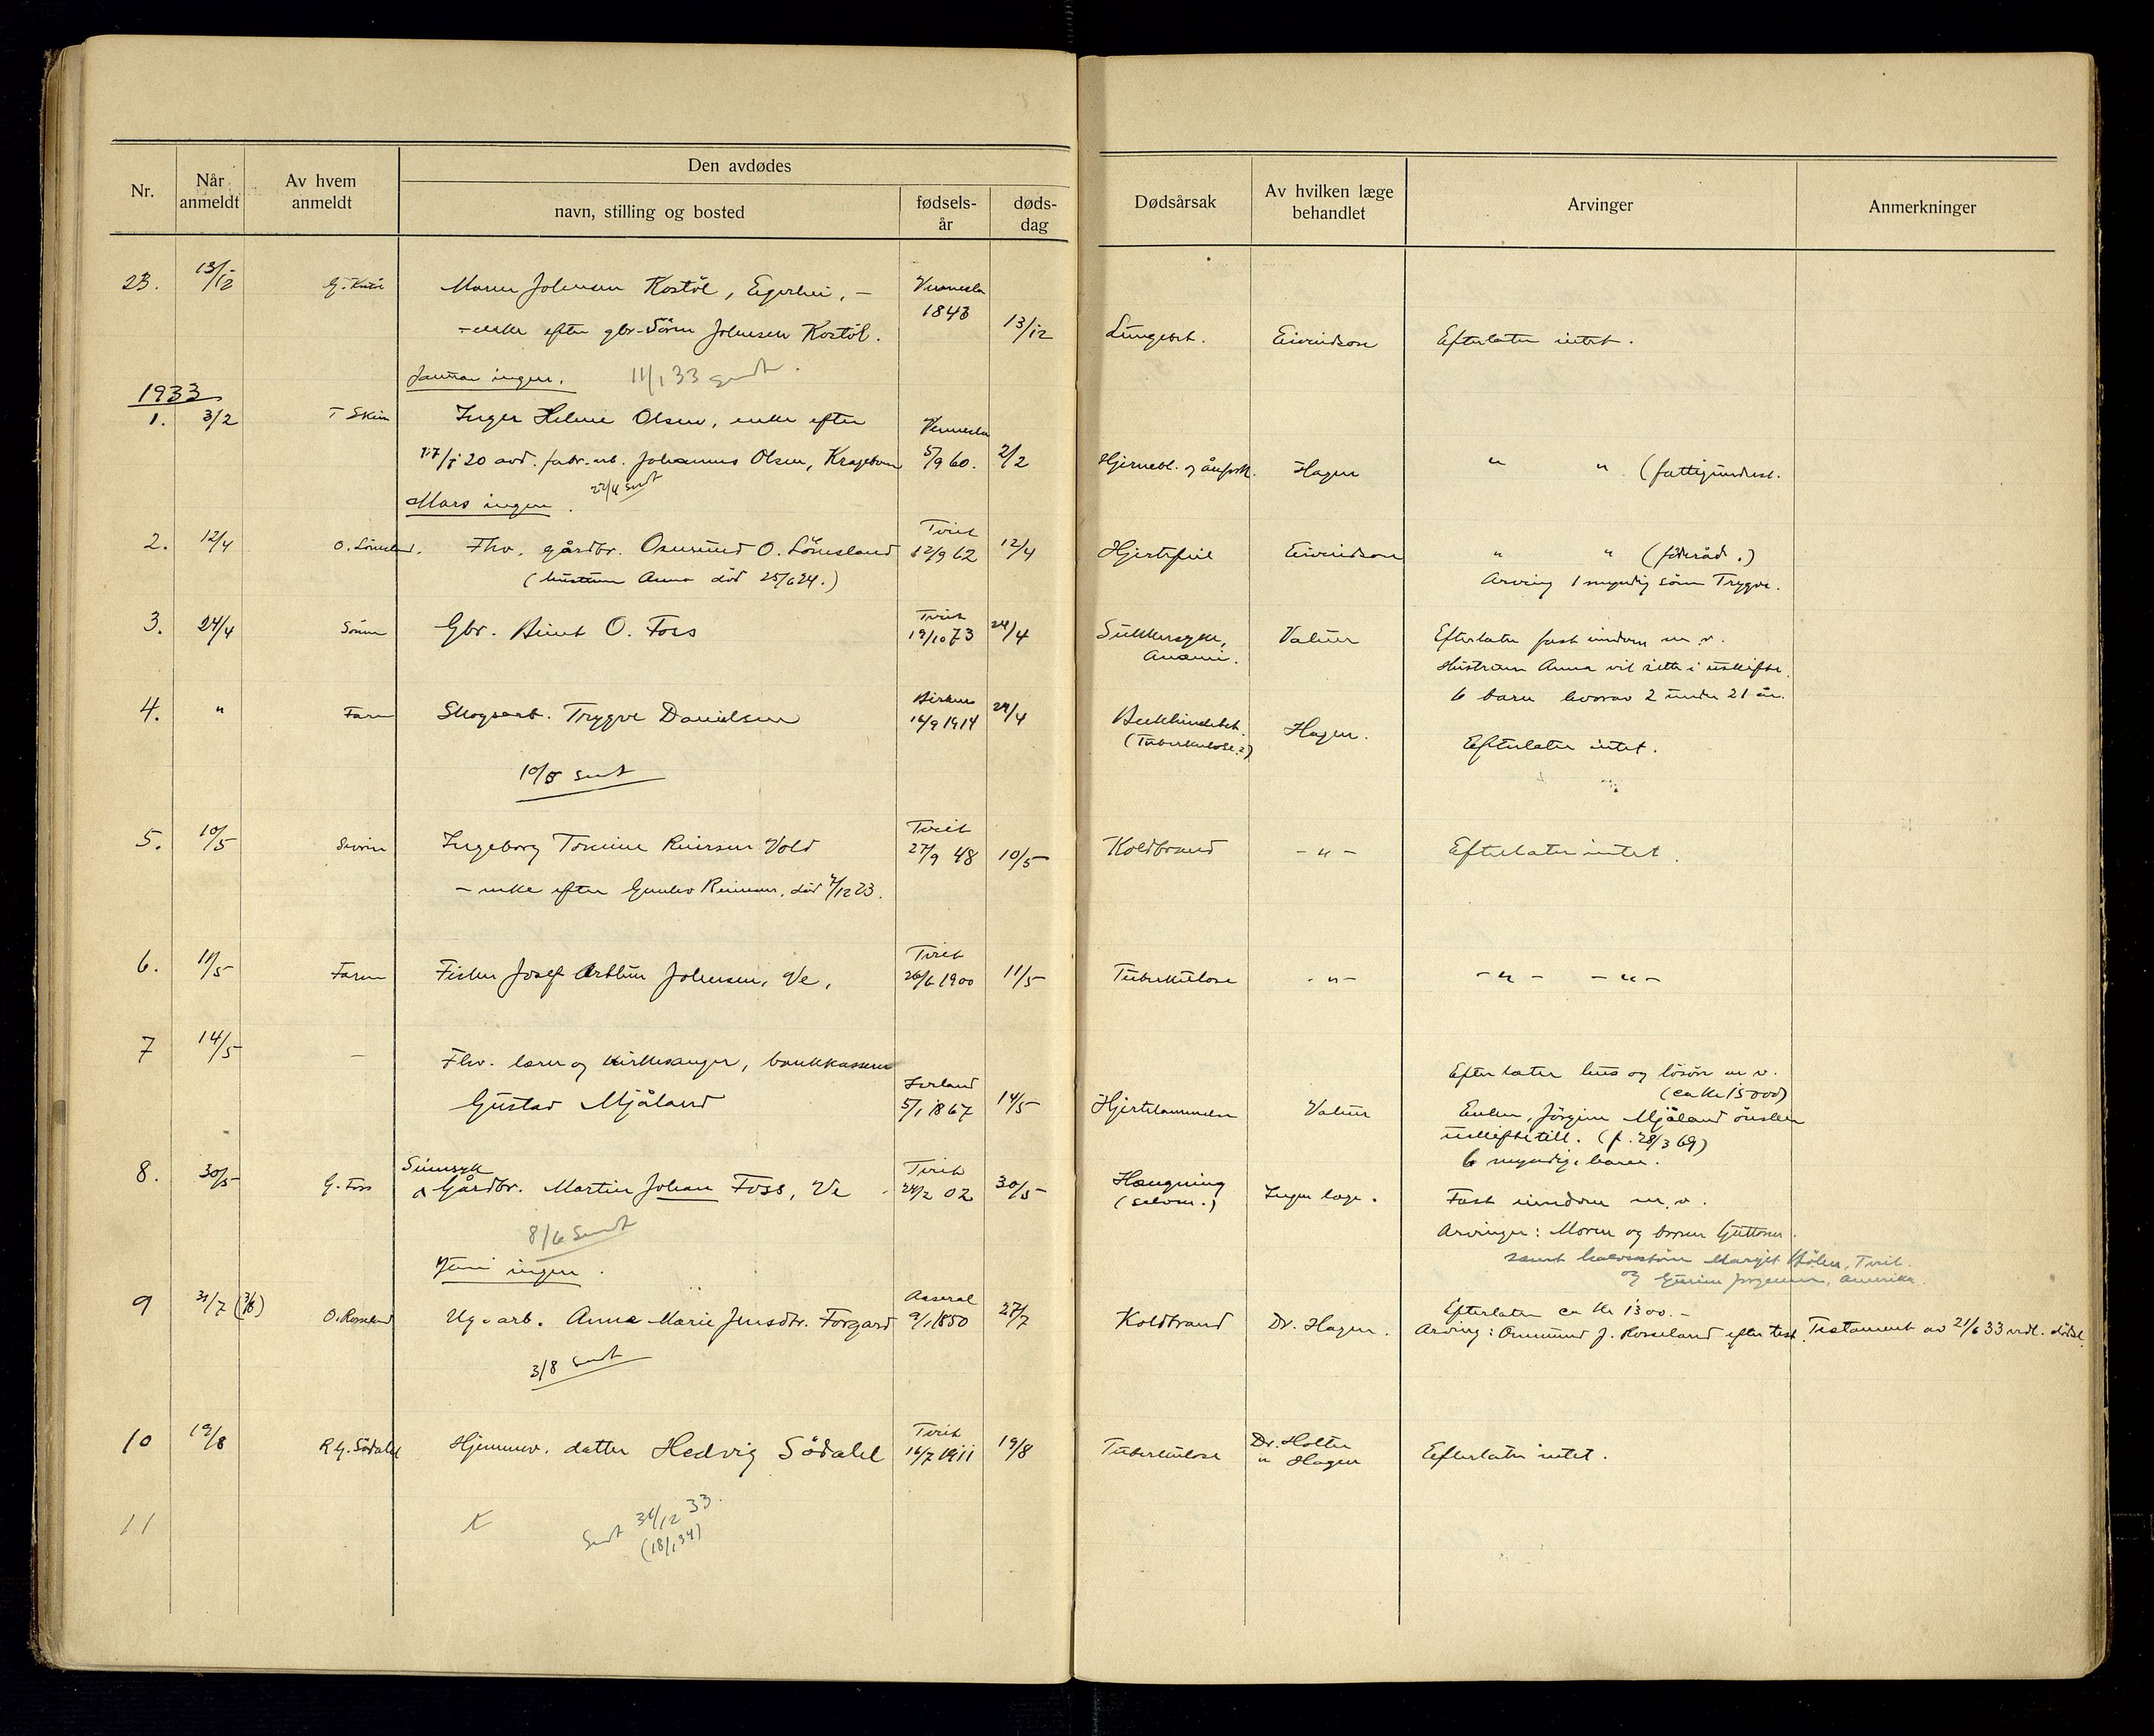 Nr.
Når anmeldt
Av hvem anmeldt
Den avdødes
navn, stilling og bosted
fødsels-år
døds-dag
Dødsårsak
Av hvilken læge behandlet
Arvinger
Anmerkninger
23. 13/12 Maren Johnsen Kostöl, Vennesla
1843
- enke efter gbr. Sören Johnsen Kostöl. 13/12 Lungebet. Eivindson Efterlater intet.
Januar ingen. 11/1 33 sendt.
1933
1. 3/2 T Skim Inger Helene Olsen, enke efter Vennesla
17/1 20 avd. fabr. arb. Johannes Olsen, 5/9 60. 2/2 Hjernebl. og Hagen " " (fattigunderst.
Mars ingen. 22/4 sendt
2. 12/4 O. Lömsland. Fhv. gårdbr. Osmund O. Lömsland Tveit 12/9 62 12/4 Hjertefeil Eivindson " " (föderåd.)
(hustrum Anna död 25/6 24.) Arving 1 myndig sönn Trygve.
3. 24/4 Sönn Gbr. O. Foss Tveit 19/10 73 24/4 Sukkersyke, Anæmi. Valeur Efterlater fast eiendom m. v.
Hustruen Anna vil sitte i uskifte.
6 barn hvorav 2 under 21 år.
4. " Faren Skogsarb. Trygve Danielsen 16/9 1914 24/4 Bukhindebet. (Tuberkulose?) Hagen. Efterlater intet.
10/5 sendt
5. 10/5 Ingeborg Tomine Reiersen Vold Tveit 27/9 48 10/5 Koldbrand - " - Efterlater intet.
- enke efter Reiersen, död /12 23.
6. 11/5 Faren Fisker Josef Arthur Johnsen, Ve, Tveit 26/6 1900 11/5 Tuberkulose - " - - " - - " -
7 14/5 - Fhv. lærer og kirkesanger, bankkasserer
Gustav Mjåland 5/1 1867 14/5 Hjertelammelse Valeur Efterlater hus og lösöre m. v.
(ca kr 15000)
Enken, Jörgine Mjåland önsker
uskiftetill. (f. 28/3 69)
6 myndige barn.
Sinnsyk
8. 30/5 G. Foss Gårdbr. Martin Johan Foss, Ve Tveit 24/2 02 30/5 Hængning (selvm.) Ingen læge. Fast eiendom m. v.
Arvinger: Moren og broren Guttorm.
8/6 sendt
Juni ingen.
9 31/7 (3/8) O. Rosseland Ug. arb. Anna Marie Jensdtr. Forgard Aaseral 9/1 1850 27/7 Koldbrand Dr. Hagen. Efterlater ca kr 1300.-
Arving: Osmund J. Rosseland efter test. Testament av 21/6 33 vedl. dödsf.
3/8 sendt
10 19/8 R G. Södalel Hjemmev. datter Hedvig Södalel Tveit 16/7 1911 19/8 Tuberkulose Dr. Holter
" Hagen Efterlater intet.
11 Sendt 31/12 33.
(18/1 34)